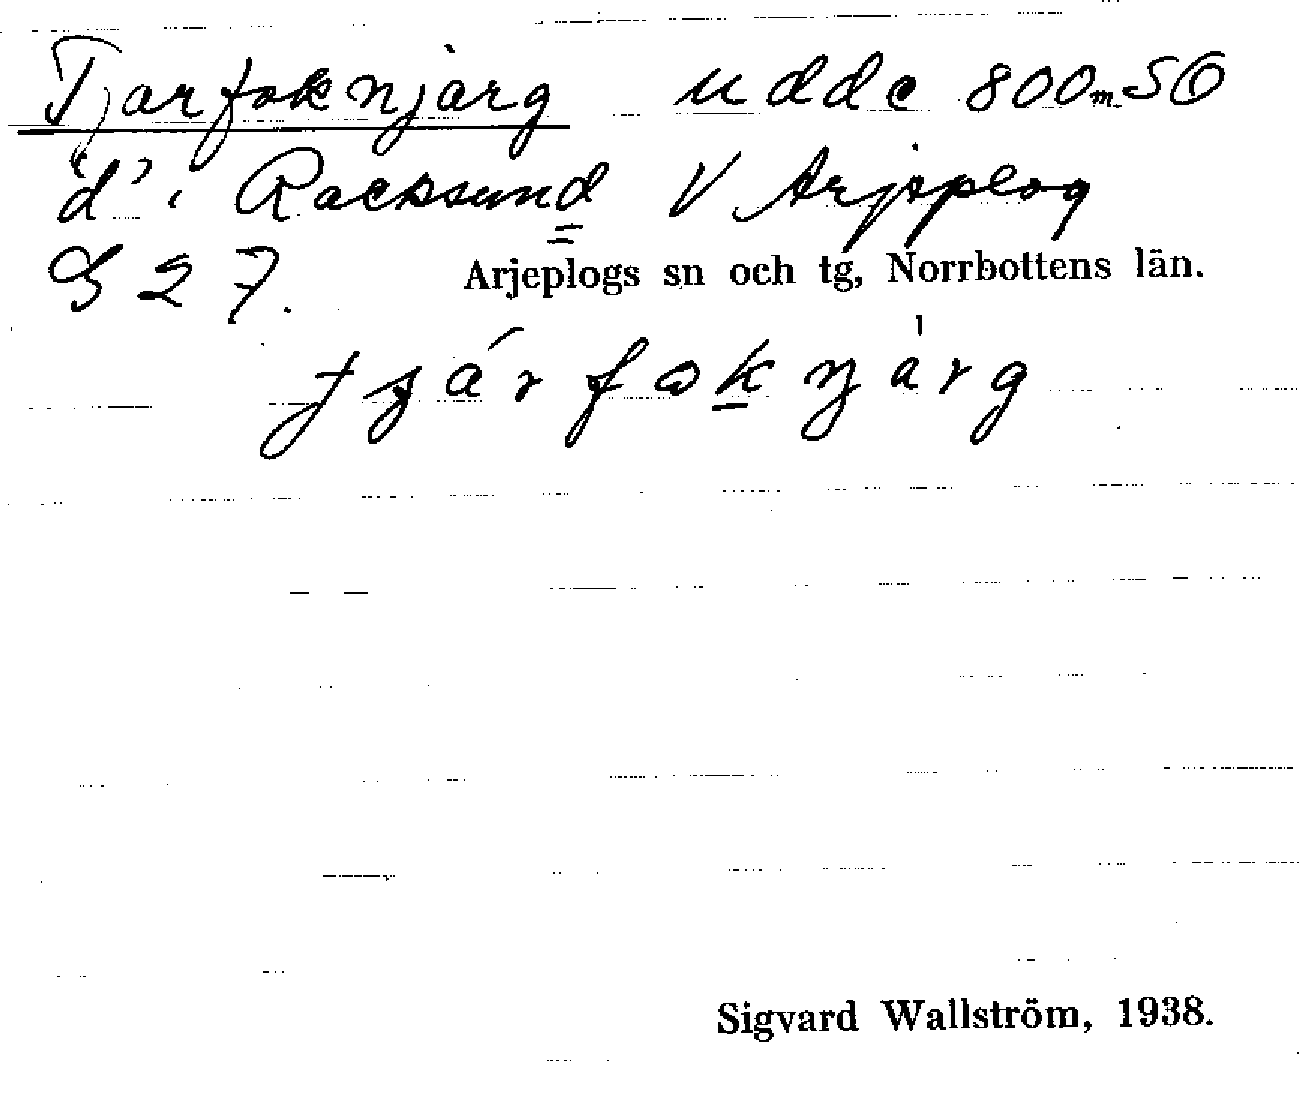 Tjarfoknjarg udde 800 m SO
"d" i Racksund V Arjeplog
S 27.
Arjeplogs sn och tg, Norrbottens län.
tjárfoknjàrg
Sigvard Wallström, 1938.